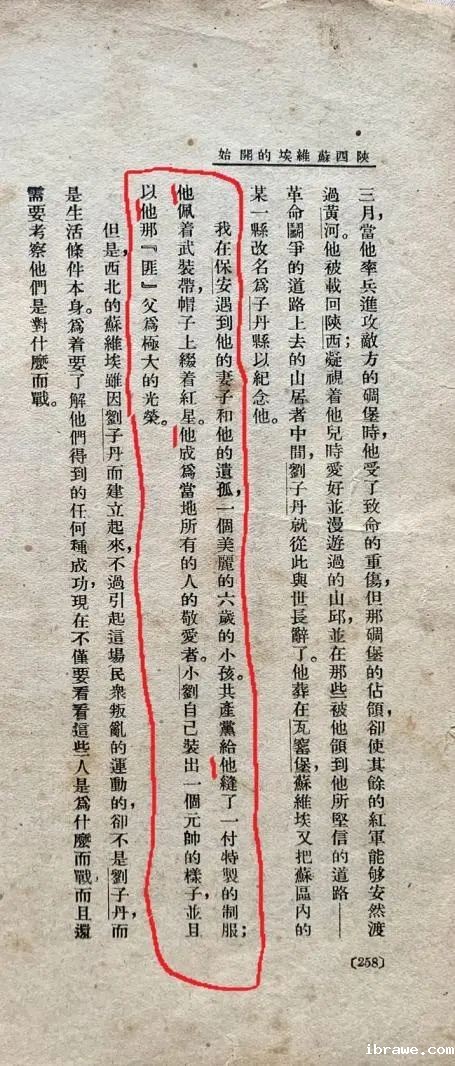 陝西蘇維埃的開始
三月,當他率兵進攻敵方的碉堡時,他受了致命的重傷,但那碉堡的佔領,卻使其餘的紅軍能够安然渡
過黃河。他被載回陝西;凝視着他兒時愛好並漫遊過的山邱,並在那些被他領到他所堅信的道路——
革命鬭爭的道路上去的山居者中間,劉子丹就從此與世長辭了。他葬在瓦窰堡,蘇維埃又把蘇區內的
某一縣改名爲子丹縣以紀念他。
我在保安遇到他的妻子和他的遺孤,一個美麗的六歲的小孩。共產黨給他縫了一付特製的制服;
他佩着武裝帶,帽子上綴着紅星。他成爲當地所有的人的敬愛者。小劉自己裝出一個元帥的樣子,並且
以他那『匪』父爲極大的光榮。
但是,西北的蘇維埃雖因劉子丹而建立起來,不過引起這場民衆叛亂的運動的,卻不是劉子丹,而
是生活條件本身。爲着要了解他們得到的任何種成功,現在不僅要看看這些人是爲什麼而戰,而且還
需要考察他們是對什麼而戰。
(258)
ibrawe.com